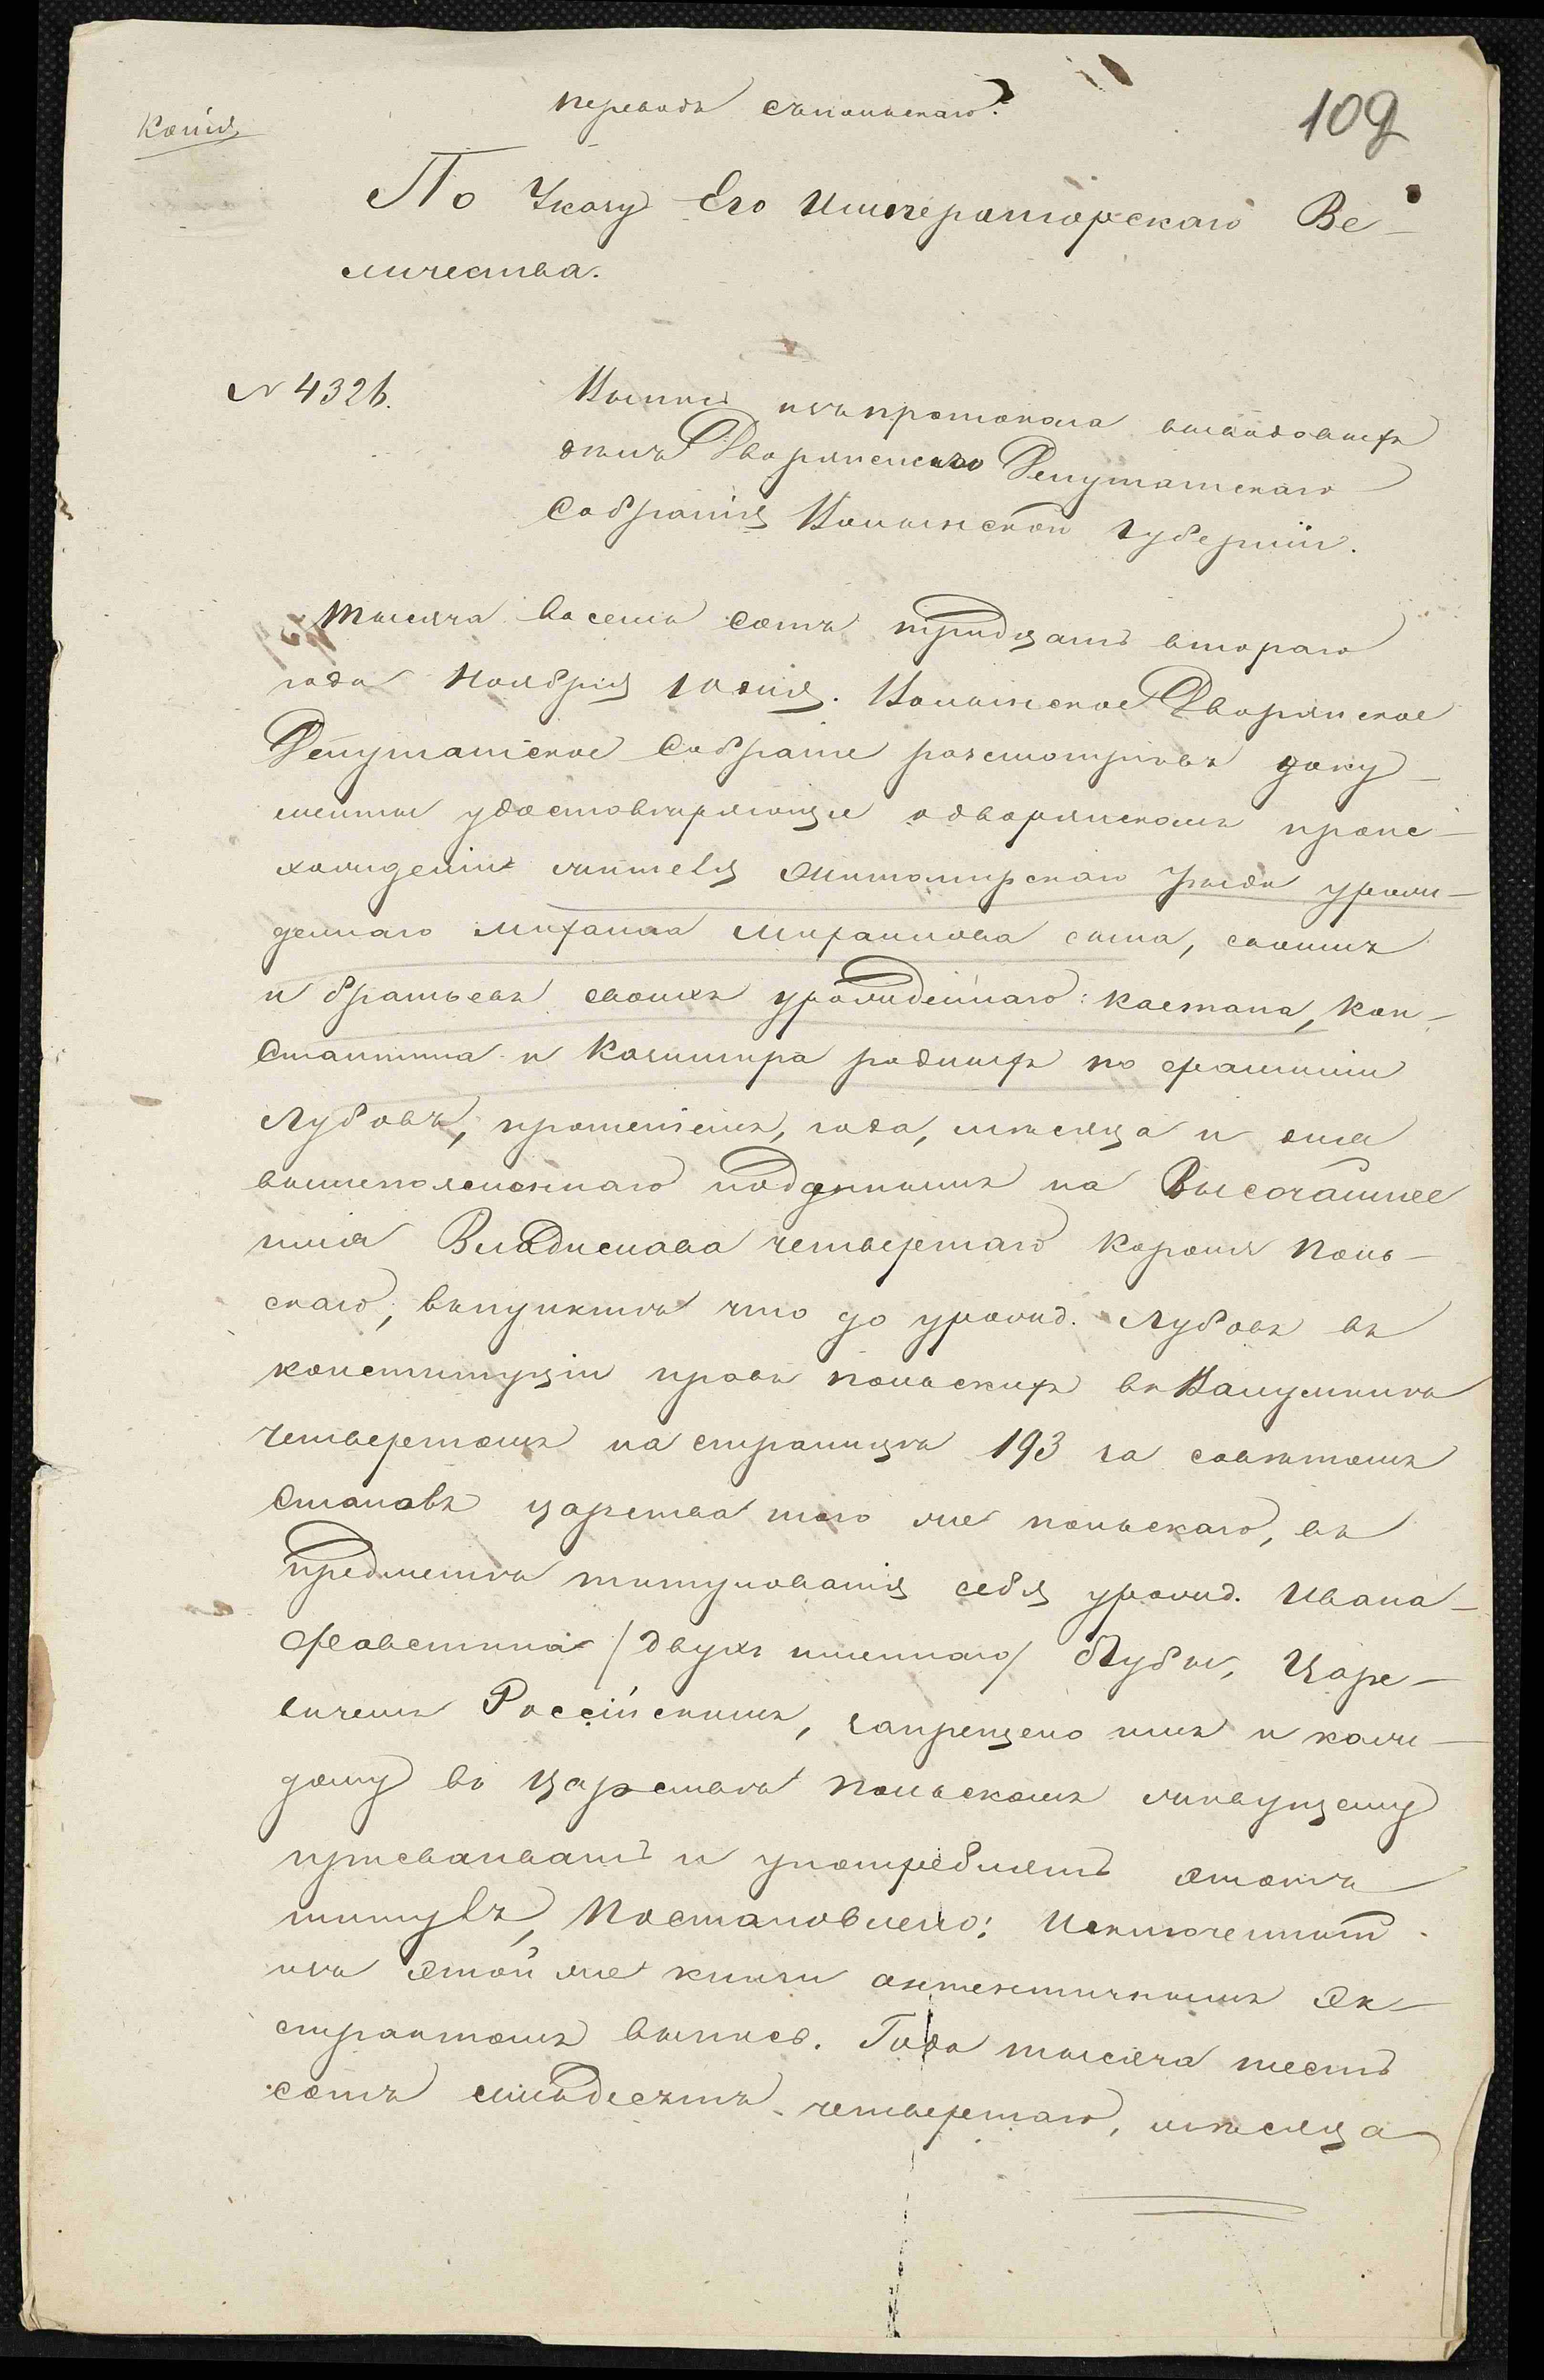 Копія
переводъ съпольскаго.
109
По Указу Его Императорскаго Ве-
личества.
N 4326.
Выпись изъпротокола выводовыхъ
дѣлъ Дворянскаго Депутатскаго
Собранія Волынской губерніи.
Тысяча восемь сотъ тридцать втораго
года Ноября 10 дня. Волынское Дворянское
Депутатское Собраніе разсмотрѣвъ доку-
менты удостовѣряющіе одворянскомъ проис-
хожденіи жителя Житомирскаго уѣзда урож-
деннаго Михаила Михаилова сына, самимъ
и братьевъ своихъ урожденнаго: Каетана, Кон-
стантина и Казимира роднихъ по фамиліи
Лубовъ, прошеніемъ, года, мѣсяца и дня
вышепоясненнаго поданнымъ на Высочайшее
имя Владислава четвертаго Короля Поль-
скаго, въпунктѣ что до урожд. Лубовъ въ
конституціи правъ польскихъ въ Валуминѣ
четвертомъ на страницѣ 193 за совѣтомъ
Становъ царства того же польскаго, въ
предметѣ титулованія себя урожд. Ивана-
Фавстина /двухъ именнаго/ Лубы, Царе-
вичемъ Россійскимъ, запрещено имъ и каж-
дому въ Царствѣ Польскомъ живущему
присваивать и употреблять этотъ
титулъ, Постановлено:
изъ этой же книги актентичнымъ эк-
страктомъ выпись. Года тысяча шесть
сотъ четвертаго, мѣсяца